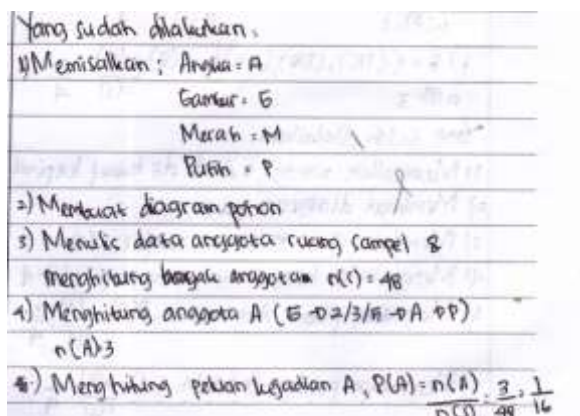 Yang sudah dilakukan :
1) Memisalkan : Angka = A
Gambar = G
Merah = M
Putih = P
2) Membuat diagram pohon
3) Menulis data anggota ruang sampel &
menghitung anggota n(s) = 48
4) Menghitung anggota A ( → 2/3/5 → A → P)
n(A) 3
5) Menghitung peluang kejadian A, P(A) = n(A)/n(s) = 3/48 = 1/16